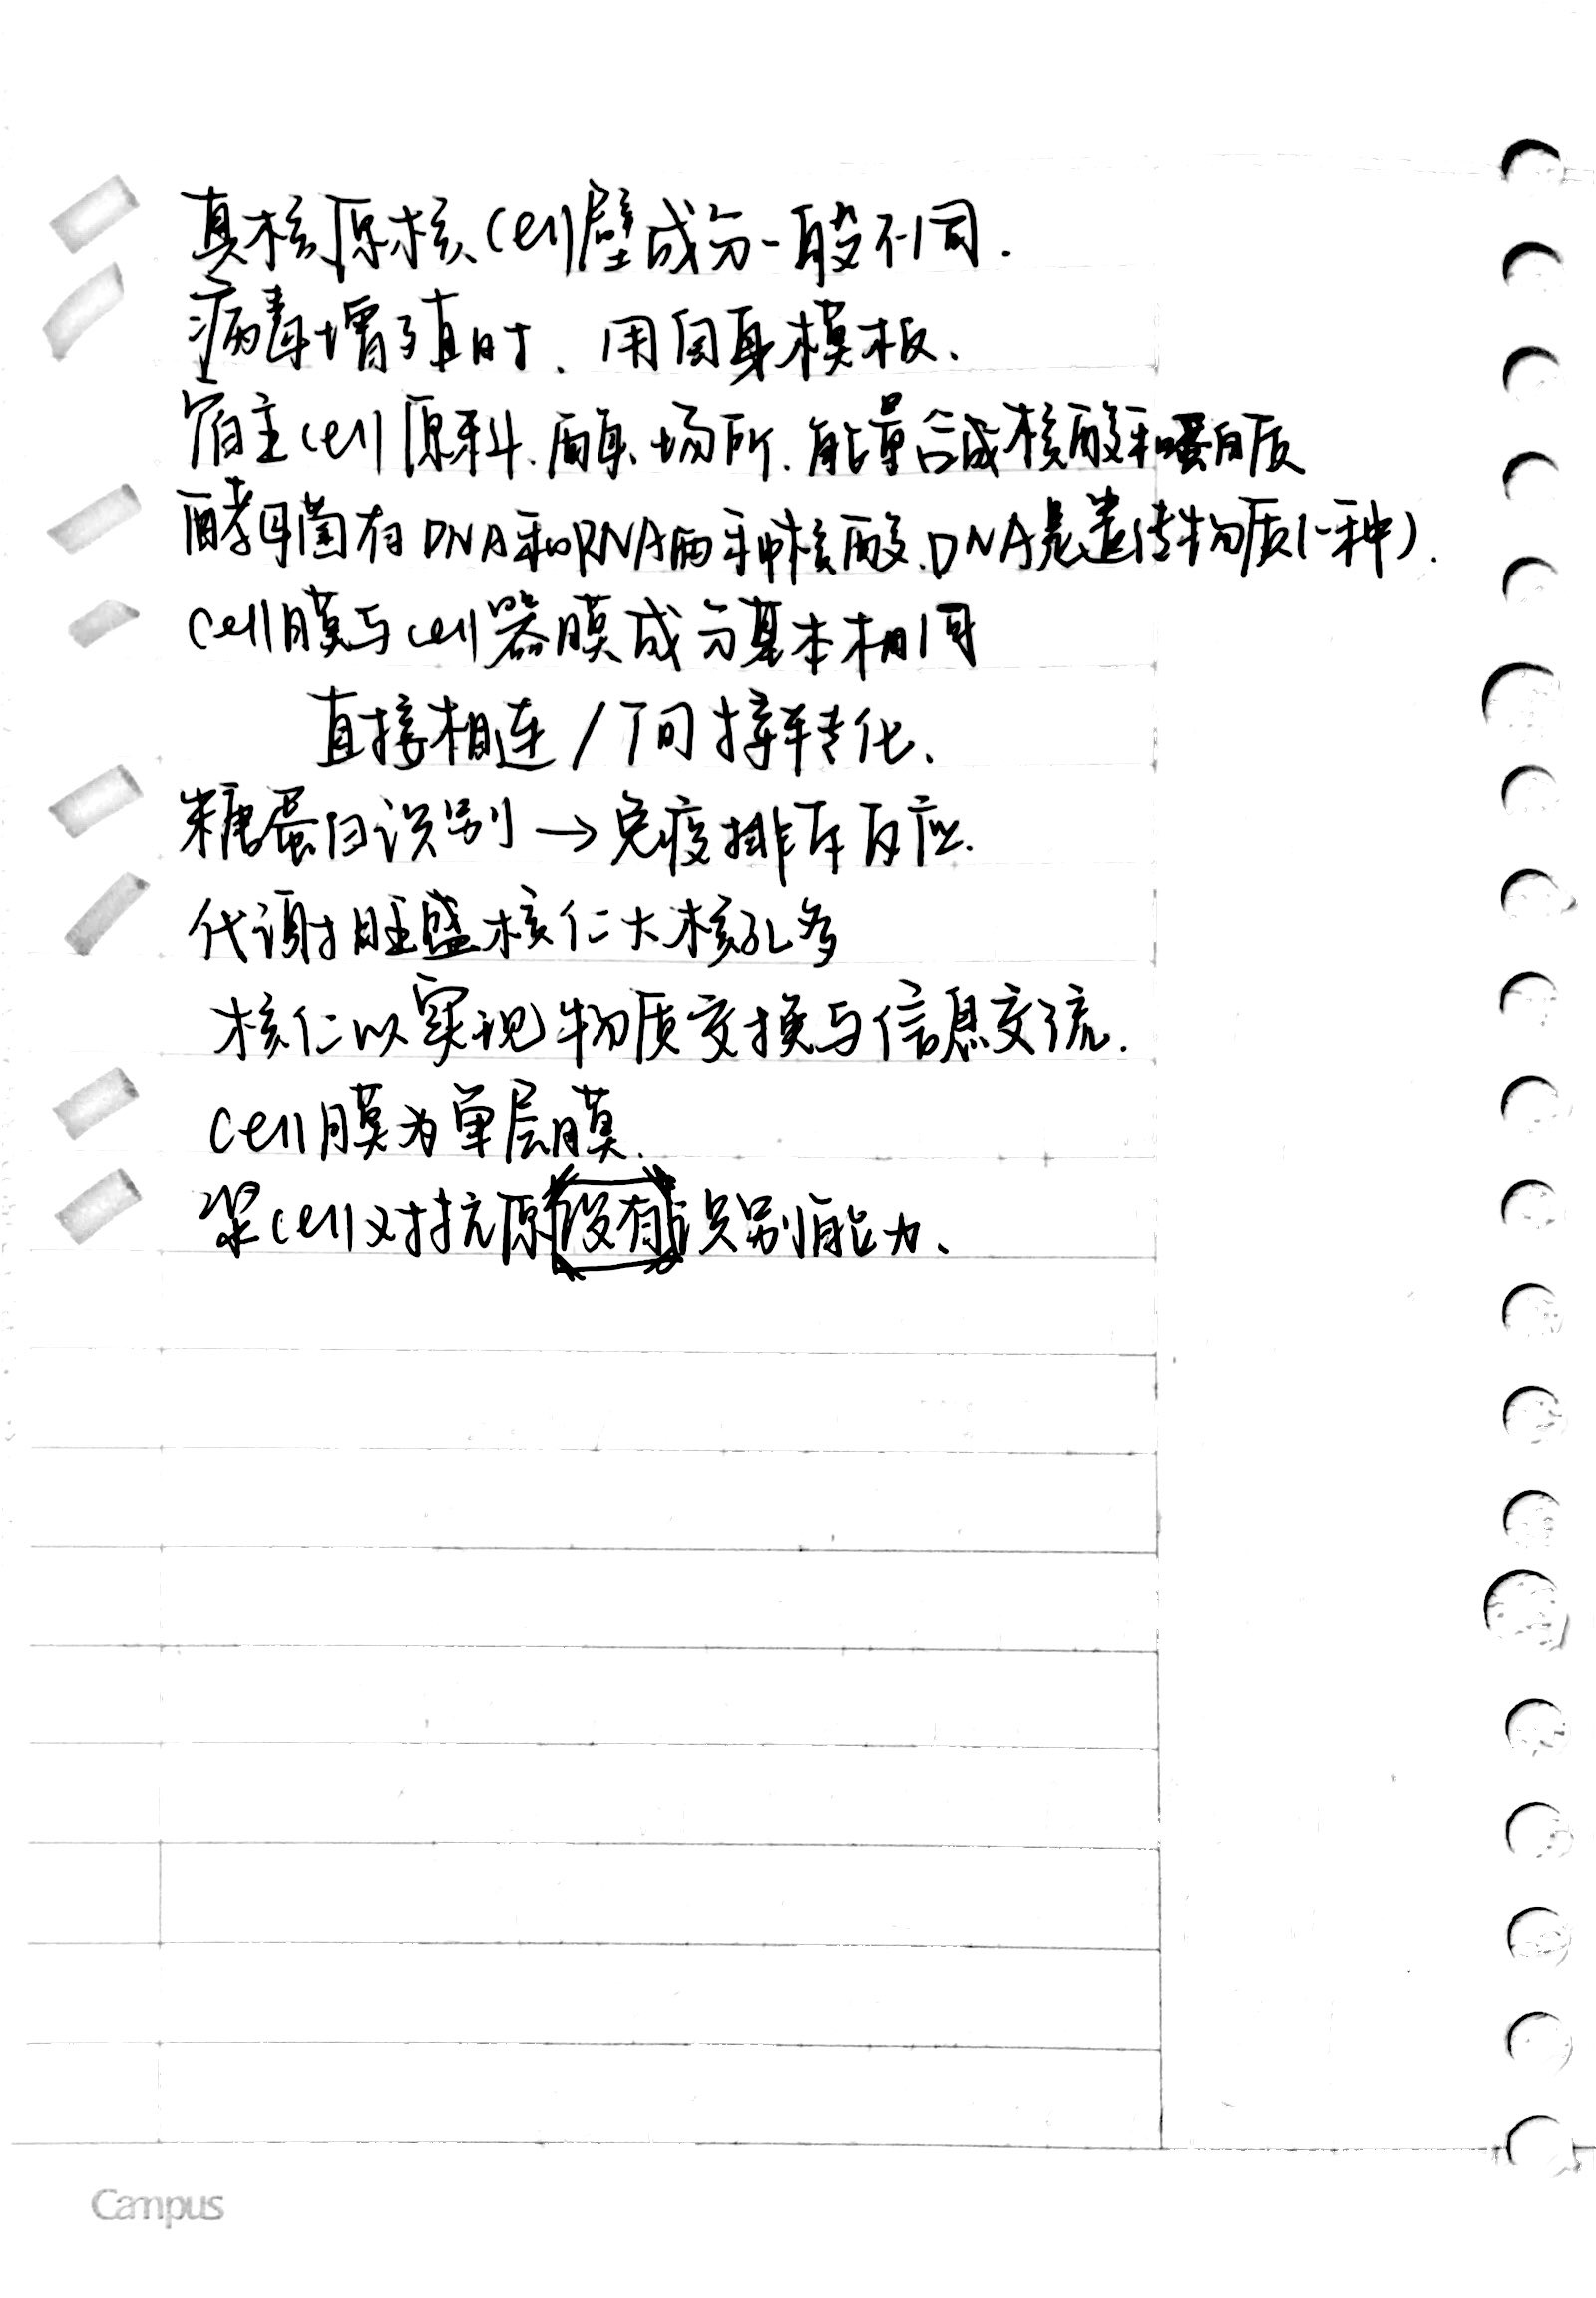 真核原核cell壁成分一般不同.
病毒增殖时、用自身模板、
宿主cell原料、酶、场所、能量合成核酸和蛋白质
酵母菌有DNA和RNA两种核酸、DNA是遗传物质(一种).
cell膜与cell器膜成分基本相同
直接相连/间接转化、
糖蛋白识别→免疫排斥反应.
代谢旺盛核仁大核孔多
核仁以实现物质交换与信息交流.
cell膜为单层膜.
浆cell对抗原没有识别能力、
Campus